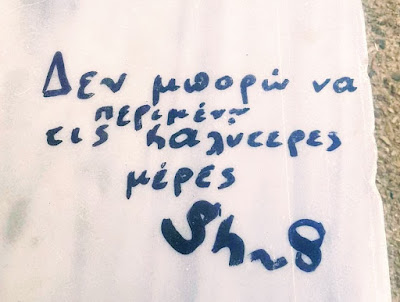 Δεν μπορώ να
περιμένω
τις καλυτερες
μέρες